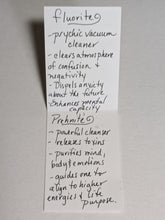 fluorite
- psychic vacuum
cleaner
- clears atmosphere
of confusion &
negativity
- Dispels anxiety
about the future
- Enhances mental
capacity
Prehnite
- powerful cleanser
- releases toxins
- purifies mind,
body & emotions
- guides one to
align to higher
energies & life
purpose.